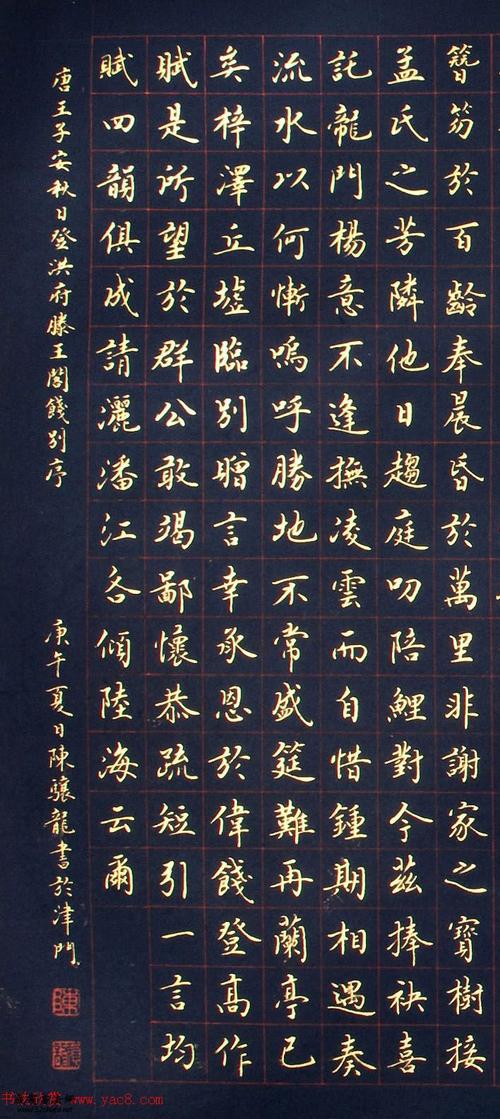 簪笏於百齡奉晨昏於萬里非謝家之寶樹接
孟氏之芳隣他日趨庭叨陪鯉對今茲捧袂喜
託龍門楊意不逢撫凌雲而自惜鍾期相遇奏
流水以何慚嗚呼勝地不常盛筵難再蘭亭已
矣梓澤丘墟臨別贈言幸承恩於偉餞登高作
賦是所望於群公敢竭鄙懷恭疏短引一言均
賦四韻俱成請灑潘江各傾陸海云爾
唐王子安秋日登洪府滕王閣餞別序
庚午夏日陳驤龍書於津門
陳
书法欣赏 www.yac8.com